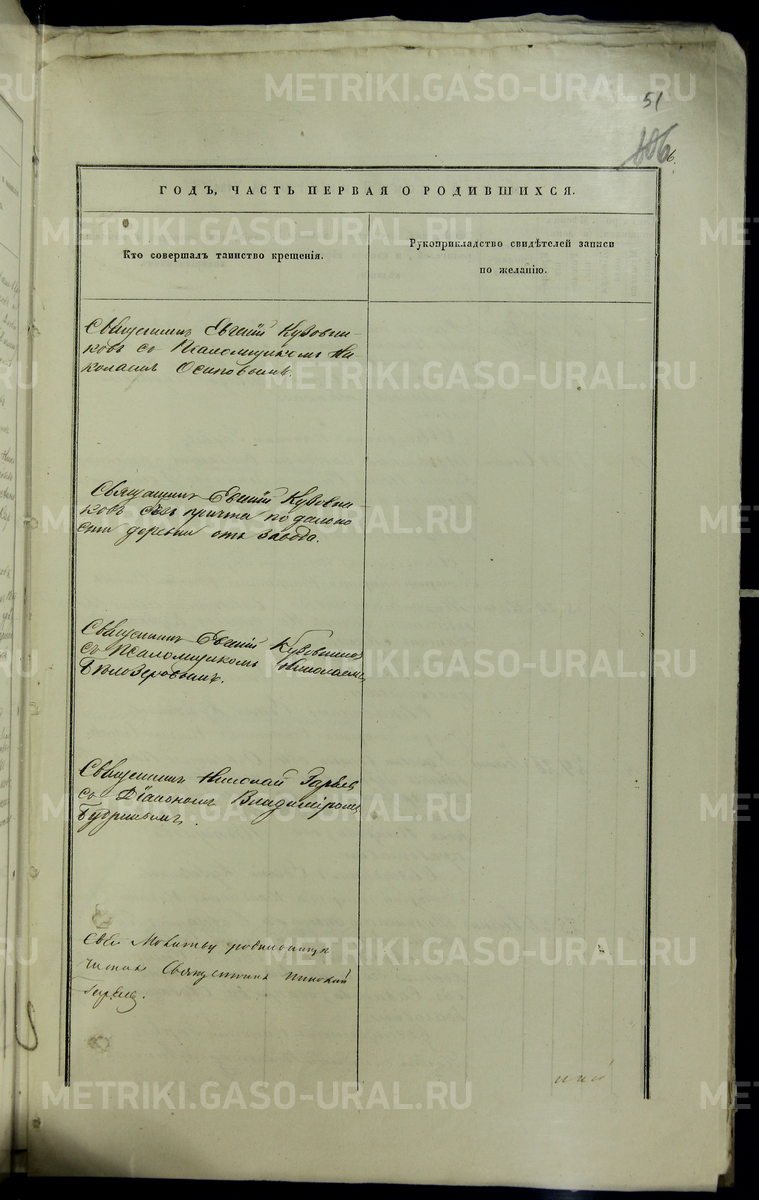 51
ГОДЪ, ЧАСТЬ ПЕРВАЯ О РОДИВШИХСЯ.
Кто совершалъ таинство крещенія.
Рукоприкладство свидѣтелей записи
по желанію.
Священникъ Евгеній Кузовни-
ковъ съ Псаломщикомъ Ни
колаемъ Осиповымъ.
Священникъ Евгеній Кузовни
ковъ безъ причта по дально
сти деревни отъ завода.
Священникъ Евгеній Кузовник
съ Псаломщикомъ Николаемъ
Бѣлозеровымъ.
Священникъ Николай
съ Діакономъ Владиміромъ
Молитву
читалъ Священникъ Николай
METRIKI.GASO-URAL.RU